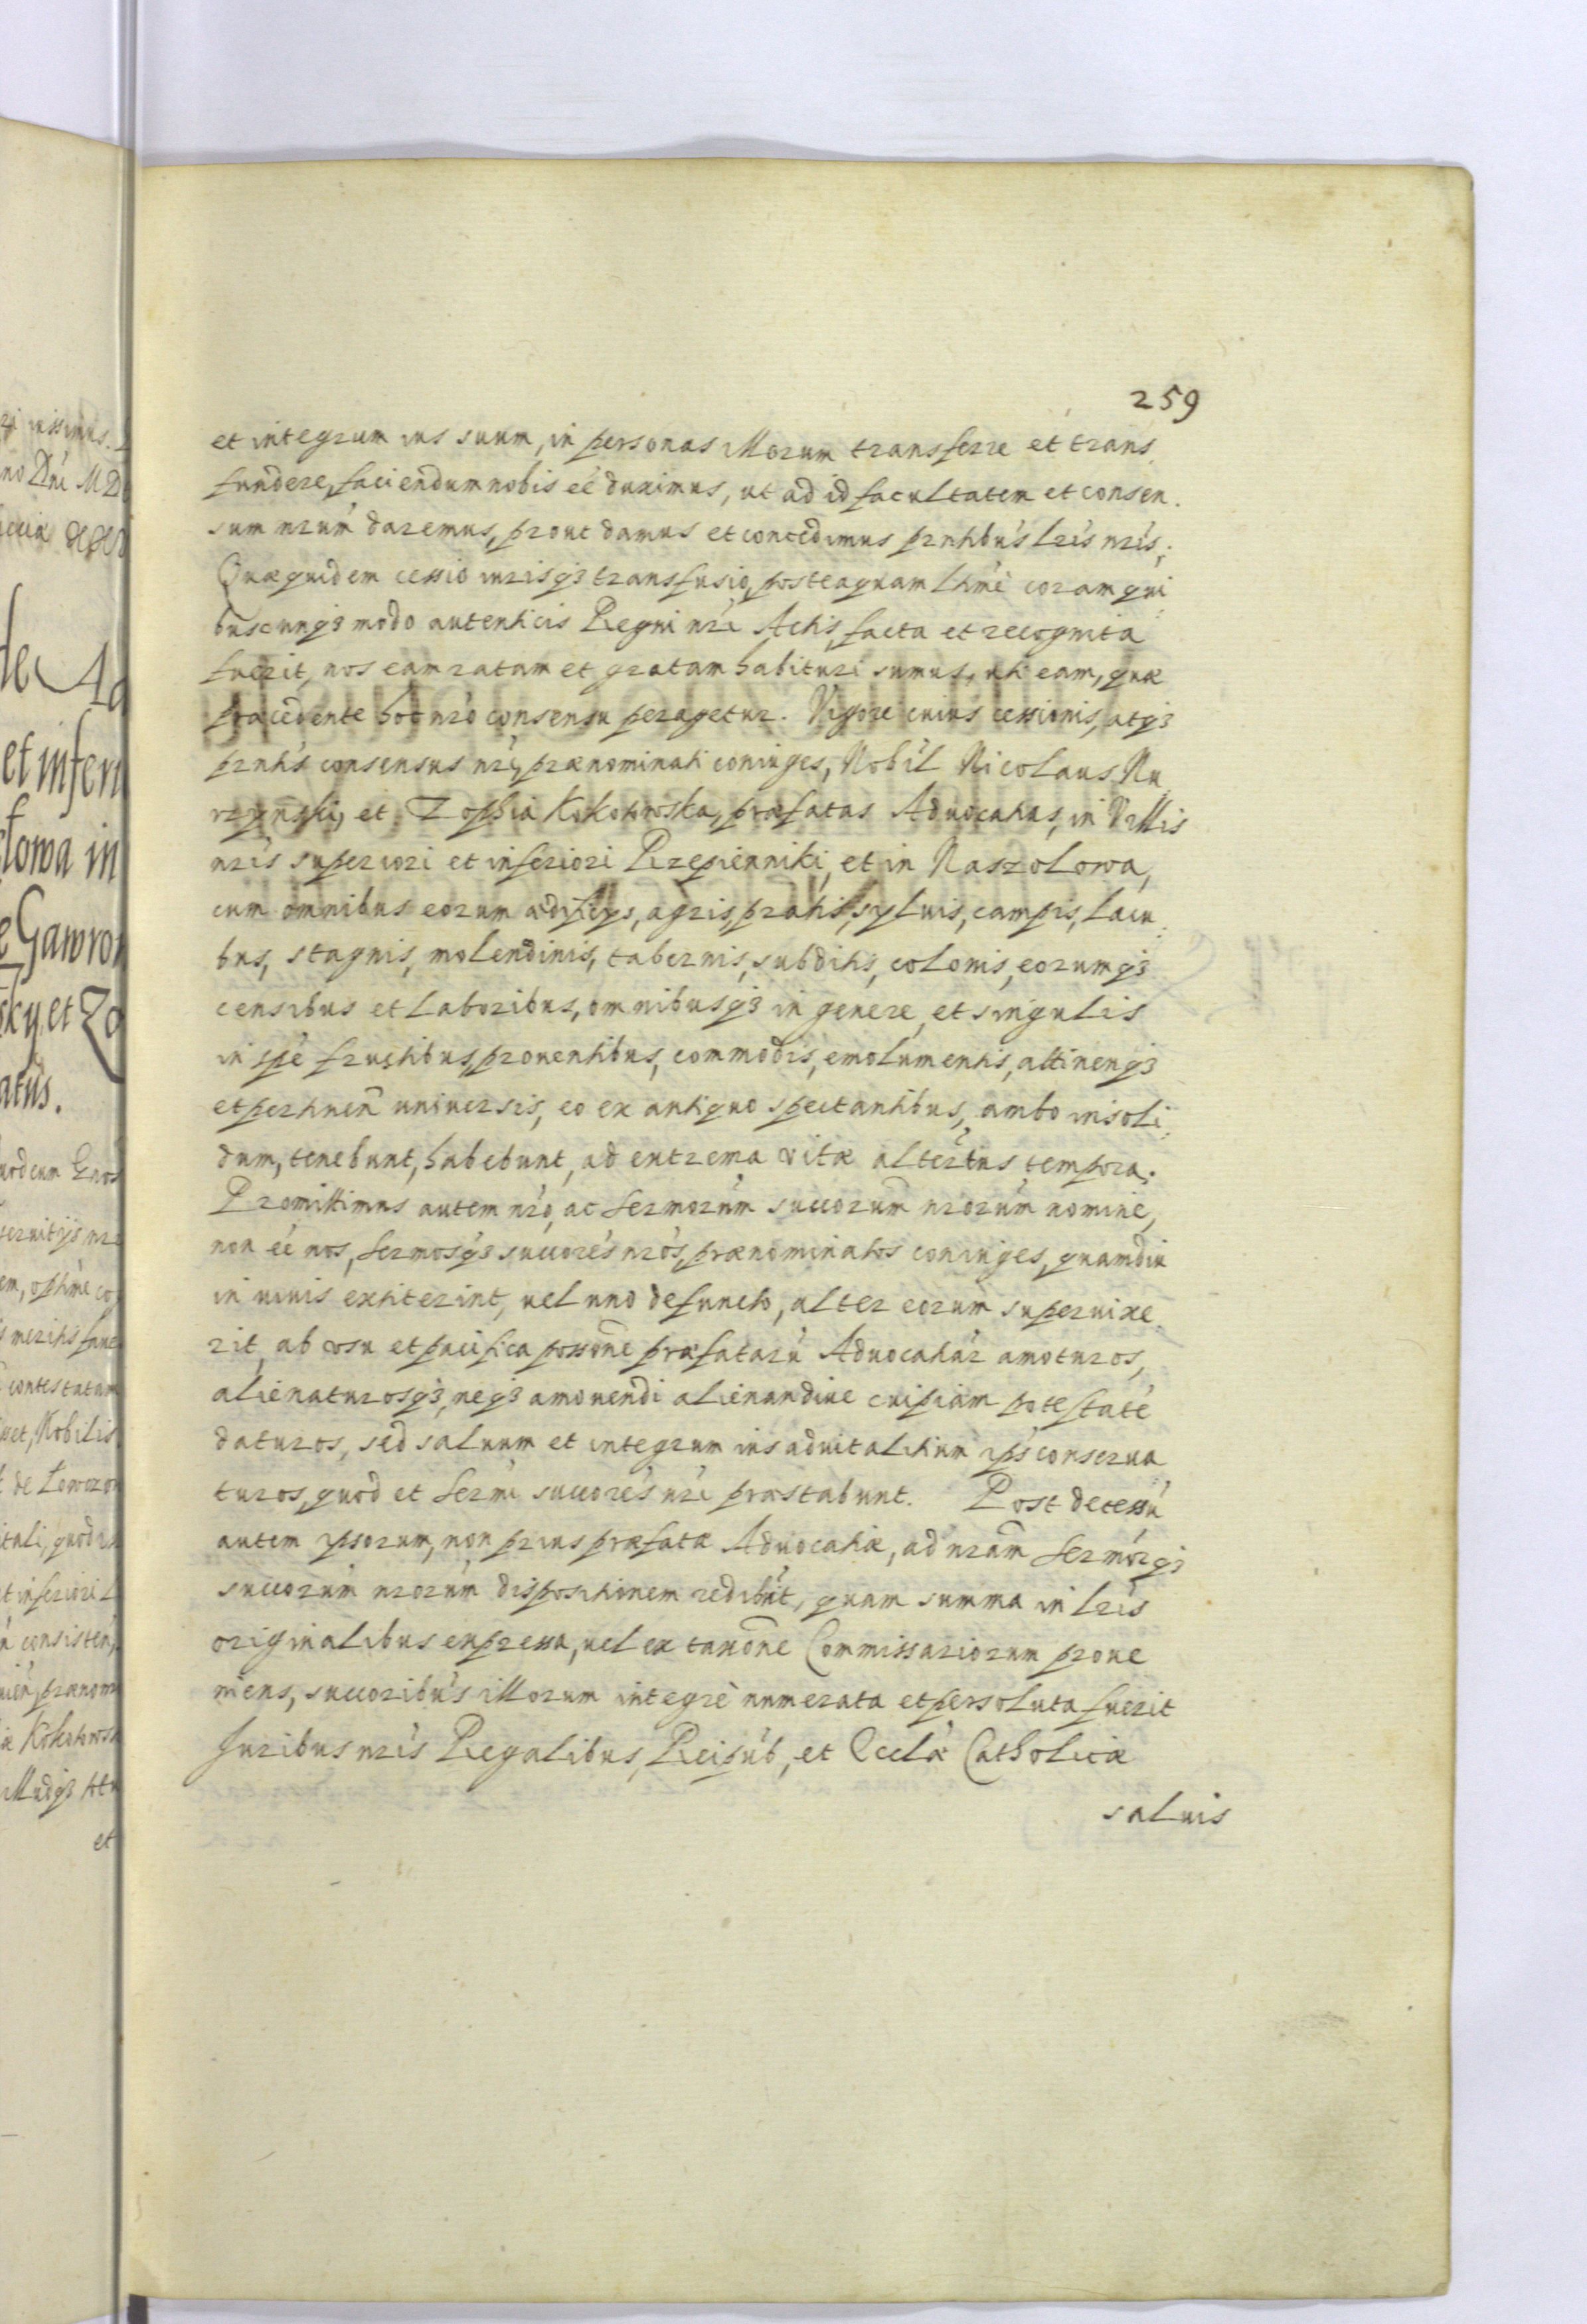 259
et integrum ius suum, in personas illorum transferre et trans
fundere, faciendum nobis eé duximus, ut ad id facultatem et consen
sum nrúm daremus, prout damus et concedimus prntibús lrís nrís,
Quæquidem cessio iurisq3 transfusio, posteaquam lthmé coram qui
buscunq3 modo autenticis Regni nrí Actis, facta et recognita
fuerit, nos eam ratam et gratam habituri sumus, uti eam, quæ
præcedente hoc nró consensu peragetur. Vigore cuius cessionis, atq3
prntís consensus nrí, prænominati coniuges, Nobíl Nicolaus Nu
rzynski, et Zophia Kokotowska, præfatas Aduocatias, in Villis
nrís superiori et inferiori Rzepienniki, et in Naszolowa,
cum omnibus eorum ædificijs, agris, pratis, syluis, campis, lacu
bus, stagnis, molendinis, tabernis, subditis, colonis, eorumq3
censibus et laboribus, omnibusq3 in genere, et singulis
in spé fructibus, prouentibus, commodis, emolumentis, attinenq3
et pertineñ uniuersis, eo ex antiquo spectantibus, ambo in soli
dum, tenebunt, habebunt, ad extrema vitæ alterius tempora.
Promittimus autem nró, ac Sermorúm succorum nrorúm nomine,
non eé nos, Sermosq3 succorés nrós, prænominatos coniuges, quamdiu
in uiuis extiterint, uel uno defuncto, alter eorum superuixe
rit, ab vsu et pacifica possone præfatarú Aduocatiár amoturos,
alienaturosq3, neq3 amouendi alienandiue cuipiam potestaté
daturos, sed saluum et integrum ius aduitalitium ipś conserua
turos, quod et Sermí succorés nrí præstabunt. Post decessú
autem ipsorum, non prius præfatæ Aduocatiæ, ad nram Sermórq3
succorúm nrorúm dispositionem redibút, quam summa in lrís
originalibus expressa, uel ex taxone Commissariorum proue
niens, succoribús illorum integrè numerata et persoluta fuerit
Juribus nrís Regalibus, Reipúb, et Ecclæ Catholicæ
saluis